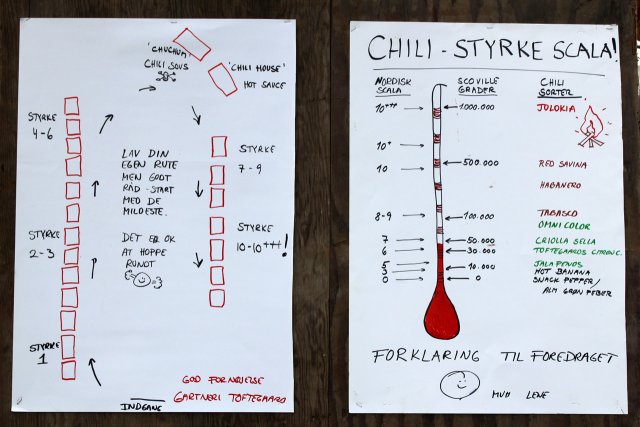 "CHUCHUM"
CHILI SOUS
"CHILI HOUSE"
HOT SAUCE
STYRKE
4-6
LAV DIN
EGEN RUTE
MEN GODT
RÅD - START
MED DE
MILDESTE.
DET ER OK
AT HOPPE
RUNDT
STYRKE
7-9
STYRKE
10-10+++!
STYRKE
2-3
STYRKE
1
INDGANG
GOD FORNØJELSE
GARTNERI TOFTEGAARD
CHILI - STYRKE SCALA!
NORDISK SCALA
SCOVILLE GRADER
CHILI SORTER
10+++ 1000.000 JOLOKIA
10+
10 500.000 RED SAVINA
HABANERO
8-9 100.000 TABASCO
OMNICOLOR
7 50.000 CRIOLLA SELLA
6 30.000 TOFTEGAARDS
5 JALAPENOS
3 10.000 HOT BANANA
0 0 SNACK PEPPER/
ALM GRØN PEBER
FORKLARING TIL FOREDRAGET
LENE